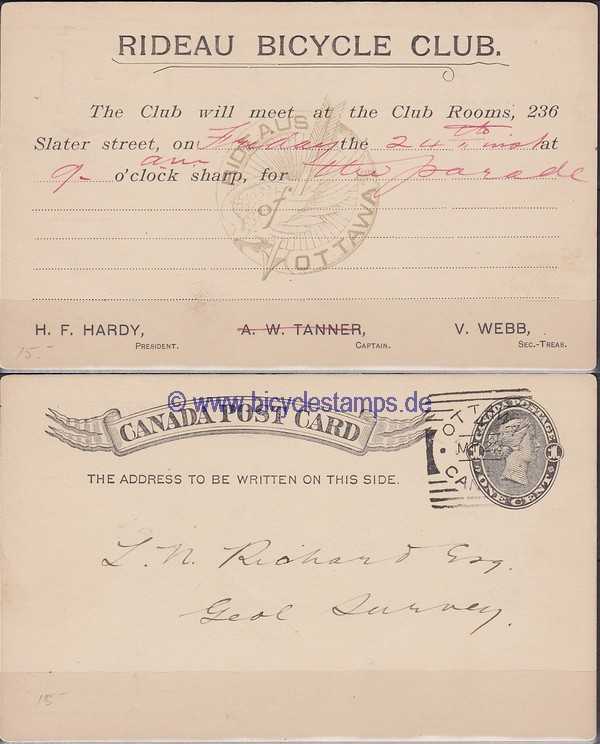 RIDEAU BICYCLE CLUB.
The Club will meet at the Club Rooms, 236
Slater street, on Friday the 24th inst at
9- am o'clock sharp, for the parade
RIDEAUS
of
OTTAWA
H. F. HARDY, A. W. TANNER, V. WEBB,
PRESIDENT. CAPTAIN. SEC.-TREAS.
15.-
© www.bicyclestamps.de
CANADA POST CARD
CANADA POSTAGE
1 1
ONE CENT
OTT
CAN
THE ADDRESS TO BE WRITTEN ON THIS SIDE.
L. N. Richard Esq.
Geol Survey.
15-